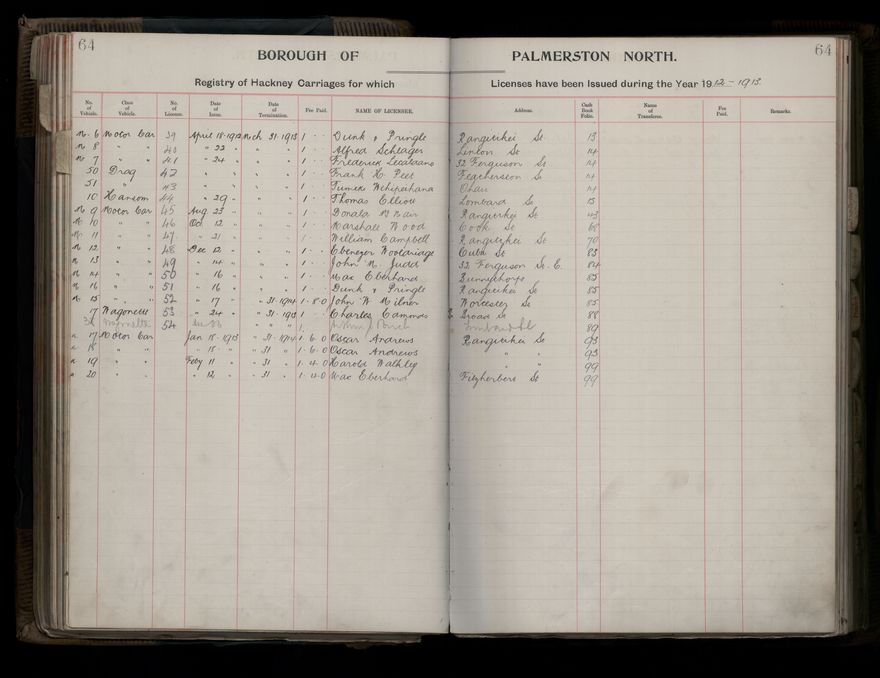 64
64
BOROUGH OF PALMERSTON NORTH.
Registry of Hackney Carriages for which Licenses have been Issued during the Year 1912 - 1913.
No. of Vehicle. Class of Vehicle. No. of License. Date of Issue. Date of Termination. Fee Paid. NAME OF LICENSEE. Address. Cash Book Folio. Name of Transferee. Fee Paid. Remarks.
M. 6 Motor Car 39 April 18-1912 Mch 31-1913 1 - - Dunk & Pringle Rangitikei St 13
M 8 " " 40 " 22 " " " 1 - - Alfred Schlager Linton St 14
M 7 " " 41 " 24 " " " 1 - - Frederick 32 Ferguson St 14
50 Drag 42 " " " " 1 - - Frank H. Peet Featherston St 14
51 " 43 " " " " 1 - - Tumeke Wehipeihana Ohau 14
10 Hansom 44 " 29 " " " 1 - - Thomas Elliott Lombard St 15
M 9 Motor Car 45 Aug 23 " " " 1 - - Donald McNair Rangitikei St 43
M 10 " " 46 Oct 12 " " " 1 - - Marshall Wood Cook St 68
M 11 " " 47 " 21 " " " 1 - - William Campbell Rangitikei St 70
M 12 " " 48 Dec 12 " " " 1 - - Ebenezer Wooldridge Cuba St 83
M 13 " " 49 " 14 " " " 1 - - John M. Judd 32 Ferguson St. E. 84
M 14 " " 50 " 16 " " " 1 - - Max Eberhard Bunnythorpe 85
M 16 " " 51 " 16 " " " 1 - - Dunk & Pringle Rangitikei St 85
M 15 " " 52 " 17 " " 31-1914 1-8-0 John W. Milner Worcester St 85
17 Wagonette 53 " 24 " " 31-1913 1 - - Charles Cammock Broad St 88
Wagonette 54 " " " 1 89
" 17 Motor Car Jan 18-1913 " 31-1914 1-6-0 Oscar Andrews Rangitikei St 93
" 18 " " " 18 " " 31 " 1-6-0 Oscar Andrews " " 93
" 19 " " Feby 11 " " 31 " 1-4-0 Harold Walkley " " 99
" 20 " " " 12 " " 31 " 1-4-0 Max Eberhard Fitzherbert St 99